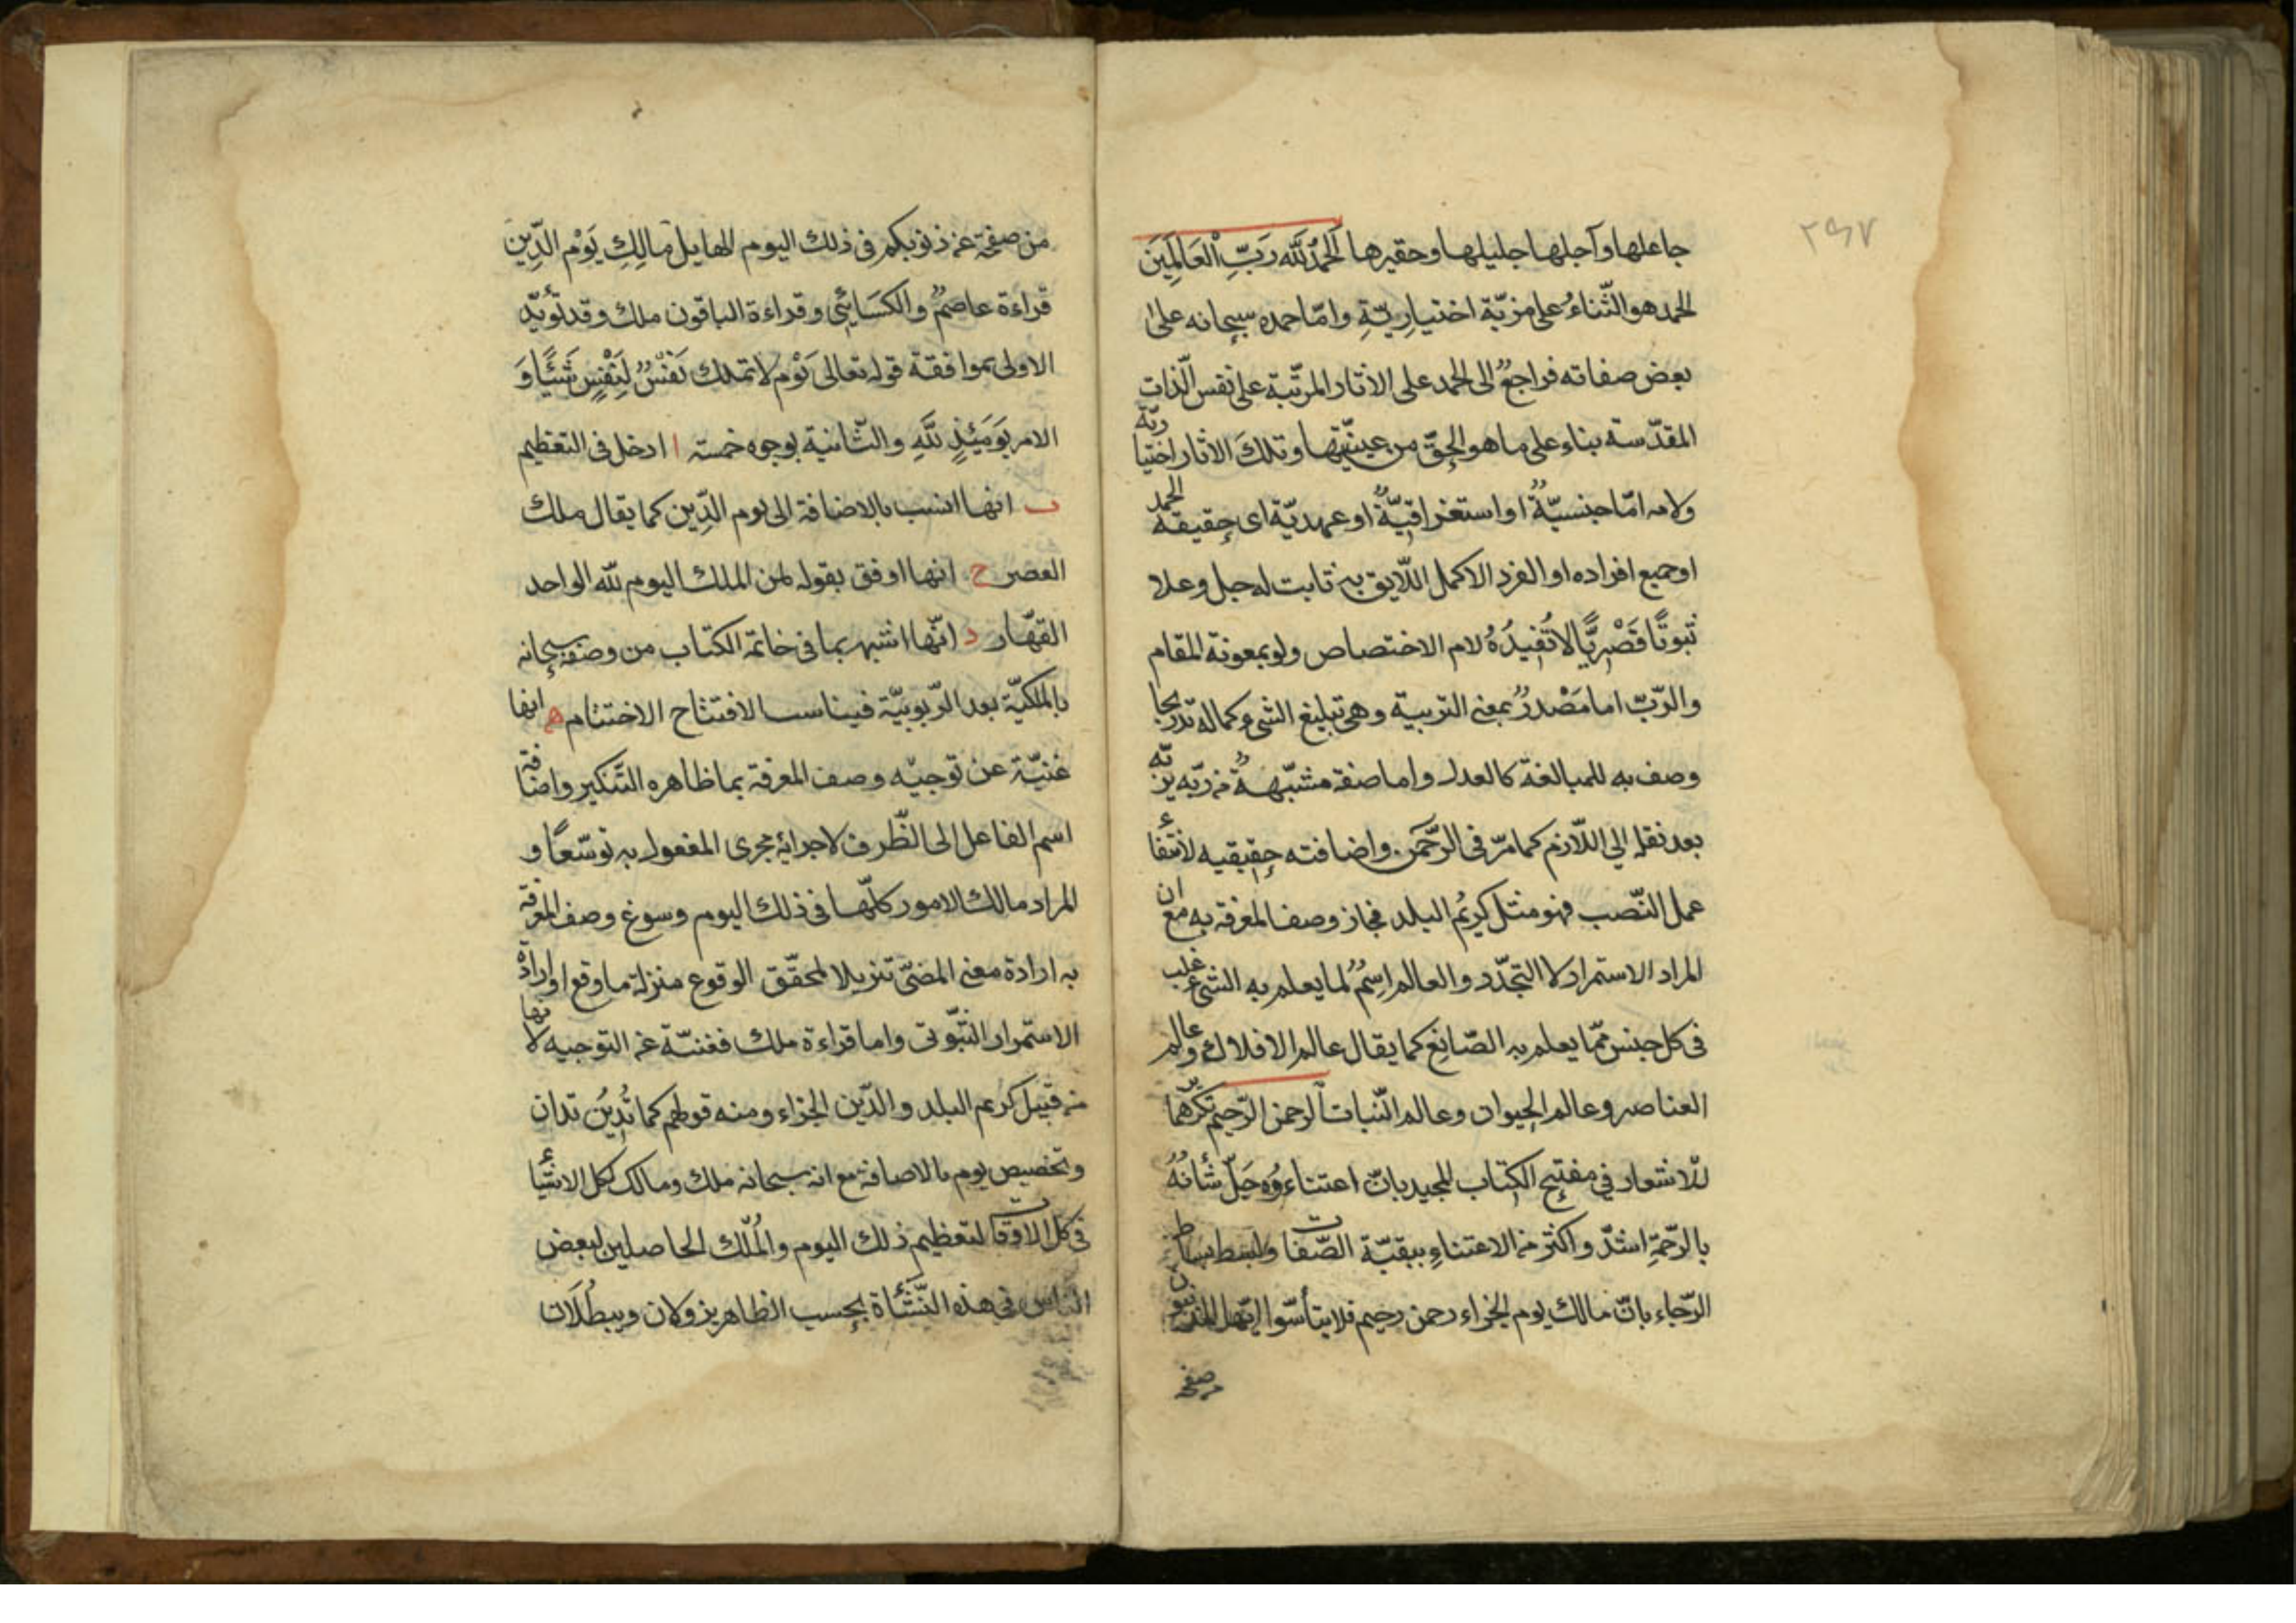 ٢٩٧
جاعلها وآجلها جليلها وحقيرها اَلحَمْدُ لِلّٰه رَبِّ الْعَالَمِينَ
الحمد هو الثّناءُ على مزيّة اختيارِيّةٍ وامّا حمده سبحانه على
بعض صفاته فراجعٌ الى الحمد على الاثار المرتّبة على نفس الّذات
المقدّسة بناء على ما هو الحقّ من عينيّتها وتلكَ الاثار اختياريّة
ولامه امّا جنسيّةٌ او استغراقيّةٌ او عهديّة اى حقيقة الحمد
او جميع افراده او الفرد الاكمل اللّايق به ثابت له جل وعلا
ثبوتًا قَصْرِيًّا لاتُفِيدُهُ لام الاختصاص ولو بمعونة المقام
والرّبّ اما مَصْدرٌ بمعنى التربية وهى تبليغ الشىء كماله تدريجا
وصف به للمبالغة كالعدل واما صفة مشبّهةٌ من ربّه يربّه
بعد نقله الى اللّازم كما مرّ فى الرَّحمَن. واضافته حقيقيه لانتفاء
عمل النّصب فهو مثل كريُم البلد فجاز وصف المعرفة به مع ان
المراد الاستمرار لا التجدّد والعالم اِسمٌ لما يعلم به الشىء غلب
فى كل جنس ممّا يعلم به الصّانِع كما يقال عالم الافلاك وعالم
العناصر وعالم الحيوان وعالم النّبات اَلرحمن الرّحيم كرّرهما
للاشعار في مفتتح الكتاب المجيد بانّ اعتناءهُ جَلّ شأنهُ
بالرّحمةِ اشدّ واكثر من الاعتناءِ ببقيّة الصّفات ولبسط بساط
الرّجاء بانّ مالك يوم الجزاء رحمن رحيم فلا يتأسّوا ايّها المذنبون
من صفح
من صفحه عن ذنوبكم فى ذلك اليوم الهايل مالِكِ يَوْم الدِّين
قراءة عاصمٌ والكسَائِي وقراءة الباقون ملك وقد تؤيّد
الاولى بموافقة قوله تعالى يَوْم لا تملك نفسٌ لِنَفْسٍ شَيْئًا وَ
الامر يَوَمَئِذٍ للّٰهِ والثّانية بوجوه خمسة ا ادخل فى التعظيم
ب انها انسب بالاضافة الى يوم الدِّين كما يقال ملك
العصر ج انها اوفق بقوله لمن الملك اليوم للّه الواحد
القهّار د انّها اشبه بما فى خاتمة الكتاب من وصفه سبحانه
بالملكيّة بعد الرّبوبيّة فيناسب الافتتاح الاختتام ه انها
غنيّة عن توجيه وصف المعرفة بما ظاهره التّنكير واضافة
اسم الفاعل الى الظّرف لاجرائه مجرى المفعول به توسّعًا و
المراد مالك الامور كلّها فى ذلك اليوم وسوغ وصف المعرفة
به ارادة معنى المضىّ تنزيلا لمحقّق الوقوع منزلة ما وقع او ارادة
الاستمرار الثّبوتى واما قراءة ملك فغنيّة عن التوجيه لانها
من قبيل كريم البلد والدّين الجزاء ومنه قولهم كما تُدِينُ تدان
وتخصيص يوم بالاضافة مع انه سبحانه ملك ومالك لكل الاشياء
فى كل الاوقات لتعظيم ذلك اليوم والمُلك الحاصلين لبعض
الناس فى هذه النّشأة بحسب الظاهر يزولان ويبطُلَان